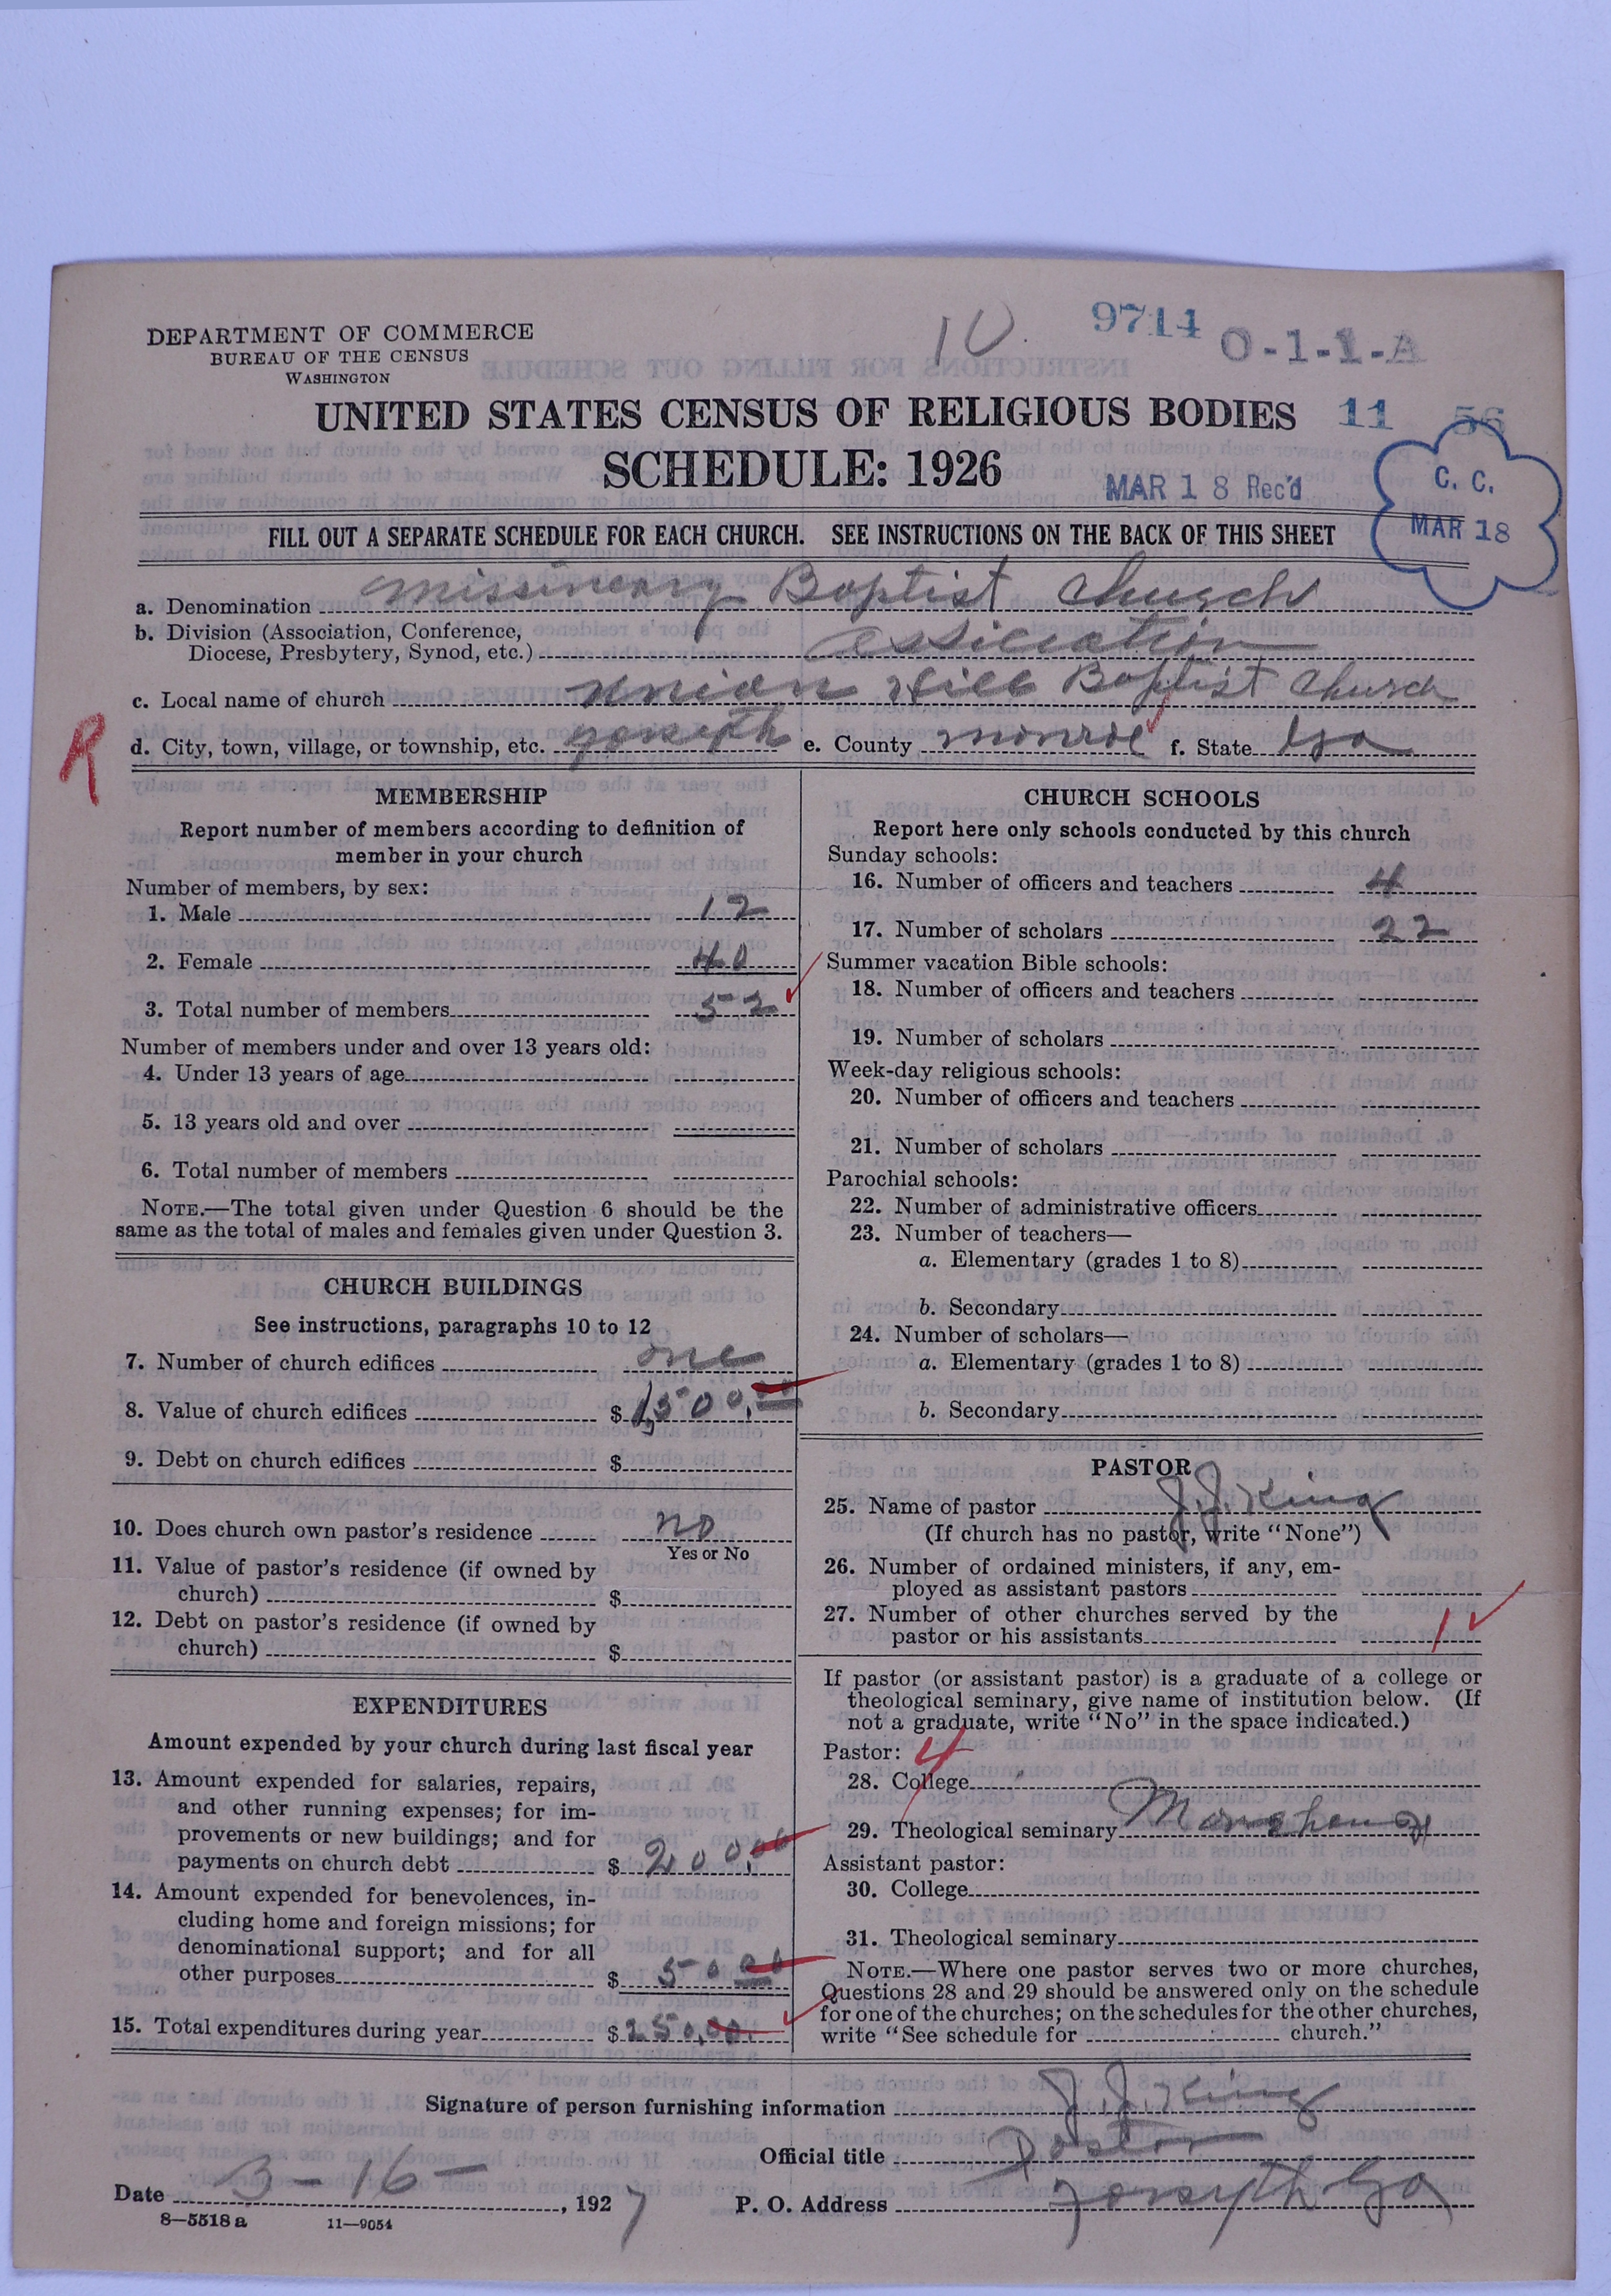 10.
9714
O-1-1-A
DEPARTMENT OF COMMERCE
BUREAU OF THE CENSUS
WASHINGTON
UNITED STATES CENSUS OF RELIGIOUS BODIES 11 56
SCHEDULE: 1926
MAR 18 Rec'd
C. C.
MAR 18
FILL OUT A SEPARATE SCHEDULE FOR EACH CHURCH. SEE INSTRUCTIONS ON THE BACK OF THIS SHEET
a. Denomination Missinery Baptist Church
b. Division (Association, Conference,
Diocese, Presbytery, Synod, etc.) assiciation
c. Local name of church Union Hill Baptist Church
R
d. City, town, village, or township, etc. e. County Monroe f. State Ga
MEMBERSHIP
Report number of members according to definition of
member in your church
Number of members, by sex:
1. Male 12
2. Female 40
3. Total number of members 52
Number of members under and over 13 years old:
4. Under 13 years of age
5. 13 years old and over
6. Total number of members
NOTE.—The total given under Question 6 should be the
same as the total of males and females given under Question 3.
CHURCH BUILDINGS
See instructions, paragraphs 10 to 12
7. Number of church edifices one
8. Value of church edifices $1,500.00
9. Debt on church edifices $
10. Does church own pastor's residence no
Yes or No
11. Value of pastor's residence (if owned by
church) $
12. Debt on pastor's residence (if owned by
church) $
EXPENDITURES
Amount expended by your church during last fiscal year
13. Amount expended for salaries, repairs,
and other running expenses; for im-
provements or new buildings; and for
payments on church debt $200.00
14. Amount expended for benevolences, in-
cluding home and foreign missions; for
denominational support; and for all
other purposes $50 00
15. Total expenditures during year $250.00
CHURCH SCHOOLS
Report here only schools conducted by this church
Sunday schools:
16. Number of officers and teachers 4
17. Number of scholars 22
Summer vacation Bible schools:
18. Number of officers and teachers
19. Number of scholars
Week-day religious schools:
20. Number of officers and teachers
21. Number of scholars
Parochial schools:
22. Number of administrative officers
23. Number of teachers—
a. Elementary (grades 1 to 8)
b. Secondary
24. Number of scholars—
a. Elementary (grades 1 to 8)
b. Secondary
PASTOR
25. Name of pastor J. J. King
(If church has no pastor, write "None")
26. Number of ordained ministers, if any, em-
ployed as assistant pastors
27. Number of other churches served by the
pastor or his assistants 1
If pastor (or assistant pastor) is a graduate of a college or
theological seminary, give name of institution below. (If
not a graduate, write "No" in the space indicated.)
Pastor: 4
28. College
29. Theological seminary
Assistant pastor:
30. College
31. Theological seminary
NOTE.—Where one pastor serves two or more churches,
Questions 28 and 29 should be answered only on the schedule
for one of the churches; on the schedules for the other churches,
write "See schedule for church."
Signature of person furnishing information J. J. King
Official title Pastor
Date 3-16-, 1927 P. O. Address Forsyth Ga
8—5518 a 11—9054